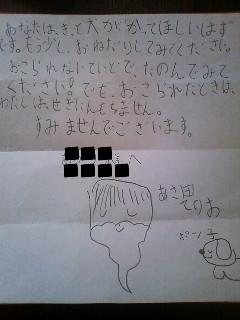 あなたは、きっと犬がかってほしいはず
です。もう少し、おねだりしてみてください。
おこられないていどで、たのんでみて
ください。でも、おこられたときは、
わたしは、せきにんもちません。
すみませんでございます。
様へ
あさ田
てのお
ポーン子